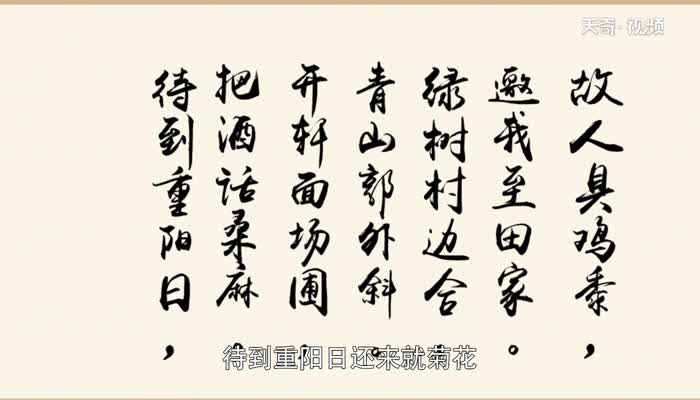 天奇·视频
故人具鸡黍，
邀我至田家。
绿树村边合
青山郭外斜。
开轩面场圃，
把酒话桑麻。
待到重阳日，
待到重阳日还来就菊花